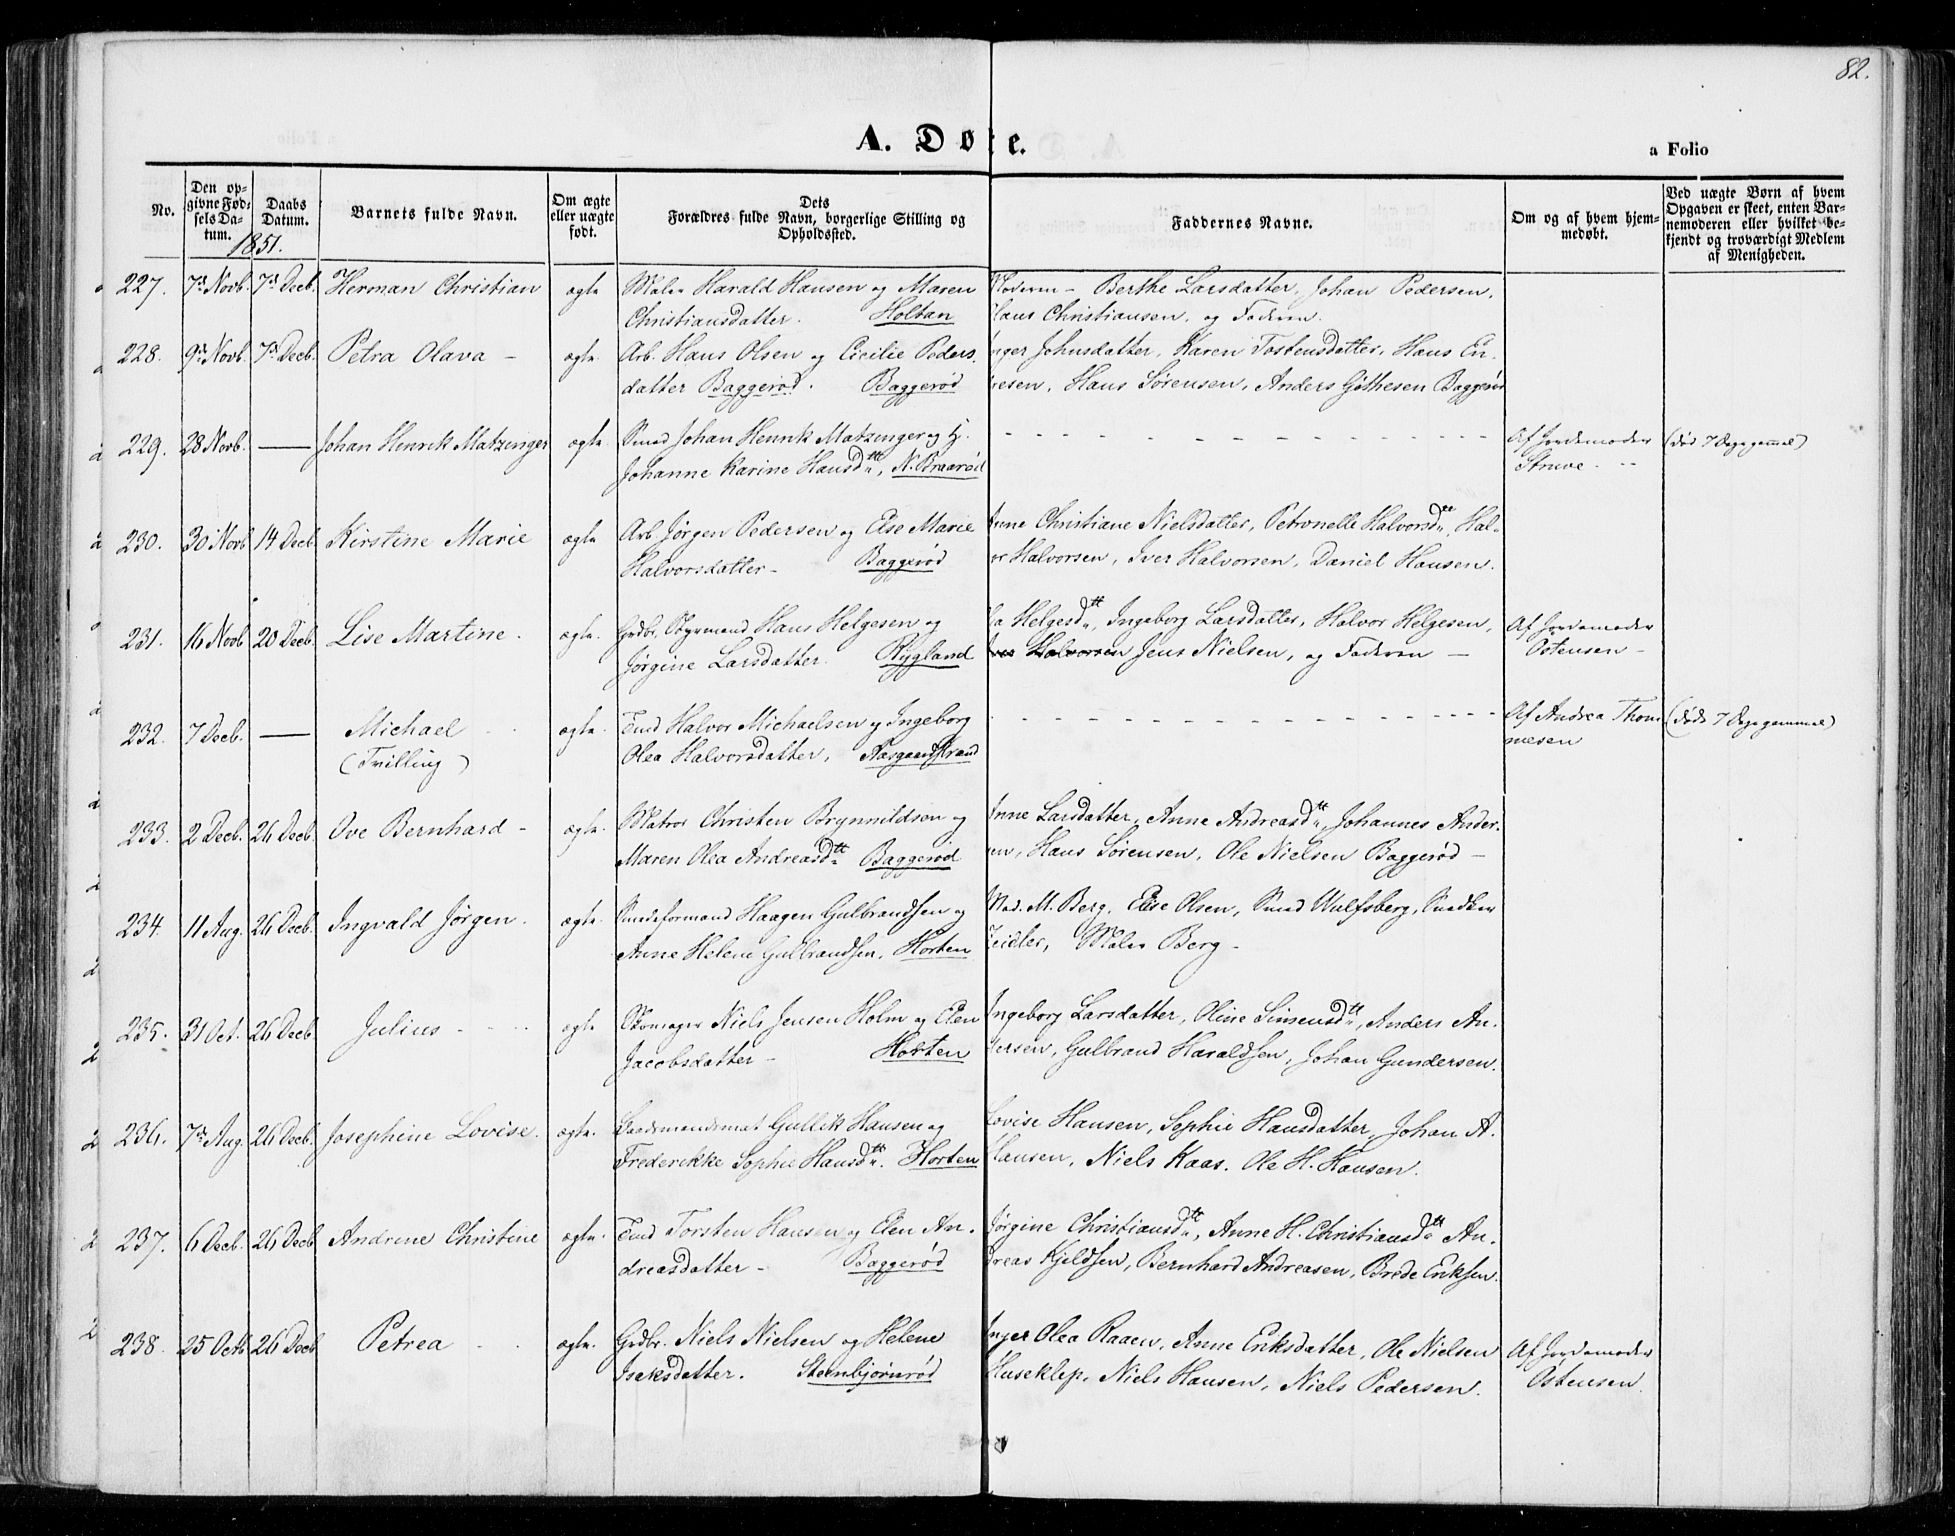 82.
A. Døbte.
a Folio
No.
Den op-
givne Fød-
sels Da-
tum.
Daabs
Datum.
Barnets fulde Navn.
Om ægte
eller uægte
født.
Dets
Forældres fulde Navn, borgerlige Stilling og
Opholdssted.
Faddernes Navne.
Om og af hvem hjem-
medøbt.
Ved uægte Børn af hvem
Opgaven er skeet, enten Bar-
nemoderen eller hvilket be-
kjendt og troværdigt Medlem
af Menigheden.
1851.
227. 7d Novb. 7d Decb. Herman Christian ægte Maler Harald Hansen og Maren Moderen - Berthe Larsdatter, Johan Pedersen,
Christiansdatter. Holtan Hans Christiansen, og Faderen.
228. 9d Novb. 7d Decb. Petra Olava - ægte. Arb. Hans Olsen og Cicilie Peders- Inger Johnsdatter, Karen Tostensdatter, Hans En-
datter Baggerød. Baggerød resen, Hans Sørensen, Anders Gjøthesen Baggerød
229. 28 Novb. — Johan Henrik Matzinger ægte Smed Johan Henrik Matzinger og Hj. - - - Af Jordemoder (død 7 Dage gammel)
Johanne Karine Hansdtr, N. Braarød Struve.
230. 30 Novb 14 Decb. Kirstine Marie ægte Arb. Jørgen Pedersen og Else Marie Anne Christiane Nielsdatter, Petronelle Halvorsdtr, Hal-
Halvorsdatter - Baggerød vor Halvorsen, Iver Halvorsen, Daniel Hansen.
231. 16 Novb 20 Decb. Lise Martine. ægte. Grdbr. Styrmand Hans Helgesen og Helgesdtr, Ingeborg Larsdatter, Halvor Helgesen, Af Jordemoder
Jørgine Larsdatter. Rygland Halvorsen Jens Nielsen, og Faderen — Østensen -
232. 7 Decb. — Michael ægte. Tmd Halvor Michaelsen og Ingeborg - - - Af Andrea Thom (døde 7 Dage gammel)
(Tvilling) Olea Halvorsdatter, Aasgaardstrand mesen
233. 2 Decb. 26 Decb. Ove Bernhard - ægte. Matros Christen Brynnildsen og Anne Larsdatter, Anne Andreasdtr, Johannes Ander-
Maren Olea Andreasdtr Baggerød sen, Hans Sørensen, Ole Nielsen Baggerød -
234. 11 Aug. 26 Decb. Ingvald Jørgen. ægte. Smedeformand Haagen Gulbrandsen og Mad. M. Berg, Elise Olsen, Smed Wulfsberg, Snedker
Anne Helene Gulbrandsen. Horten Zeidler, Maler Berg -
235. 31 Oct. 26 Decb Julius - ægte Skomager Niels Jensen Holm og Elen Ingeborg Larsdatter, Oline Simensdtr, Anders An-
Jacobsdatter - Horten dersen, Gulbrand Haraldsen, Johan Gundersen.
236. 7d Aug. 26 Decb. Josephine Lovise. ægte. Baadsmandsmat Gullik Hansen og Lovise Hansen, Sophie Hansdatter, Johan A.
Frederikke Sophie Hansdtr. Horten Hansen, Niels Kaas. Ole H. Hansen.
237. 6 Decb. 26 Decb Andrine Christine ægte. Tmd Torsten Hansen og Elen An- Jørgine Christiansdtr, Anne H. Christiansdtr An-
dreasdatter - Baggerød dreas Kjeldsen, Bernhard Andreasen, Brede Eriksen.
238. 25 Octb 26 Decb Petrea ægte. Grdbr. Niels Nielsen og Helene Inger Olea Raaen, Anne Eriksdatter, Ole Nielsen Af Jordemoder
Iseksdatter. Steenbjørnrød Huseklep, Niels Hansen, Niels Pedersen. Østensen.